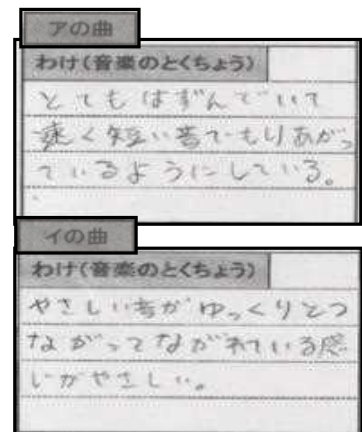 アの曲
わけ(音楽のとくちょう)
とてもはずんでいて
速く短い音でもりあがっ
ているようにしている。
イの曲
わけ(音楽のとくちょう)
やさしい音がゆっくりとつ
ながってながれている感
じがやさしい。